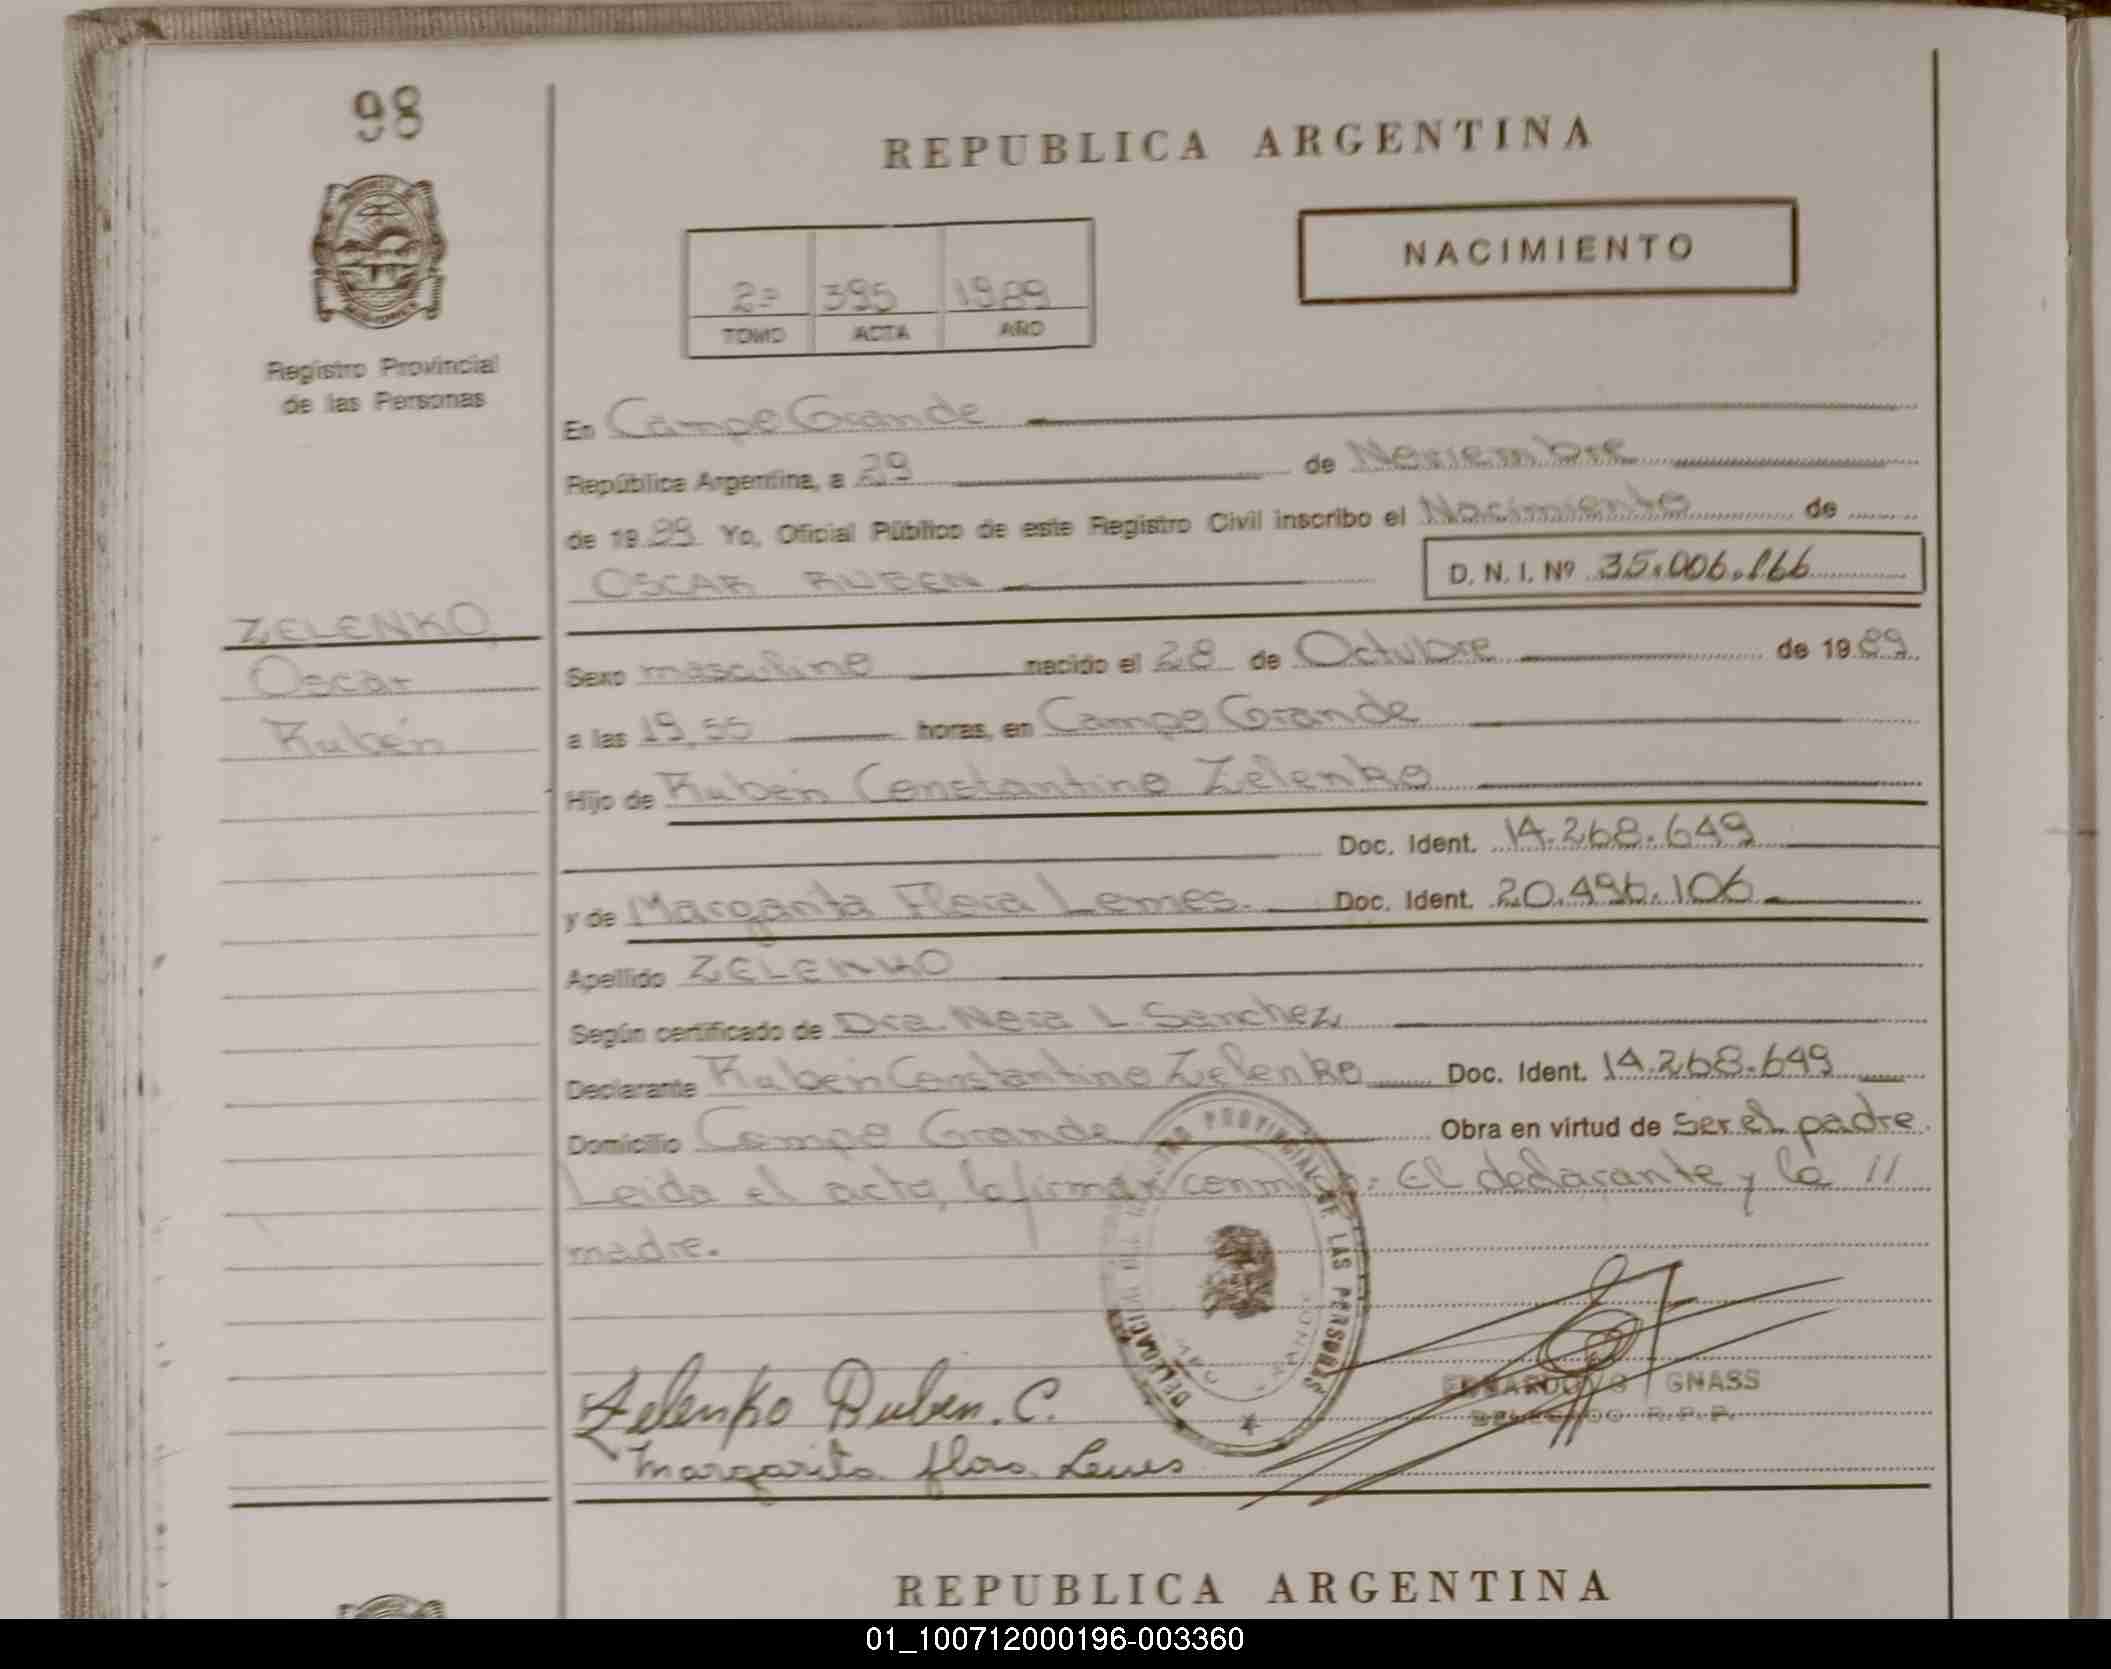 98
REPUBLICA ARGENTINA
NACIMIENTO
2º 395 1989
TOMO ACTA AÑO
Registro Provincial
de las Personas
En Campo Grande
República Argentina, a 29 de Noviembre
de 1989 Yo, Oficial Público de este Registro Civil inscribo el Nacimiento de
OSCAR RUBEN D. N. I. Nº 35.006.166
ZELENKO,
Oscar
Rubén
Sexo masculino nacido el 28 de Octubre de 1989
a las 19,55 horas, en Campo Grande
Hijo de Rubén Constantino Zelenko
Doc. Ident. 14.268.649
y de Margarita Flora Lemes. Doc. Ident. 20.496.106
Apellido ZELENKO
Según certificado de Dra. L. Sanchez
Declarante Rubén Constantino Zelenko Doc. Ident. 14.268.649
Domicilio Campo Grande Obra en virtud de Ser el padre
Leída el acta, la firman conmigo: El declarante y la //
madre.
DELEGACION DEL REGISTRO PROVINCIAL DE LAS PERSONAS
Zelenko Ruben. C.
GNASS
DELEGADO R.P.P.
Margarita flora Lemes
REPUBLICA ARGENTINA
01_100712000196-003360